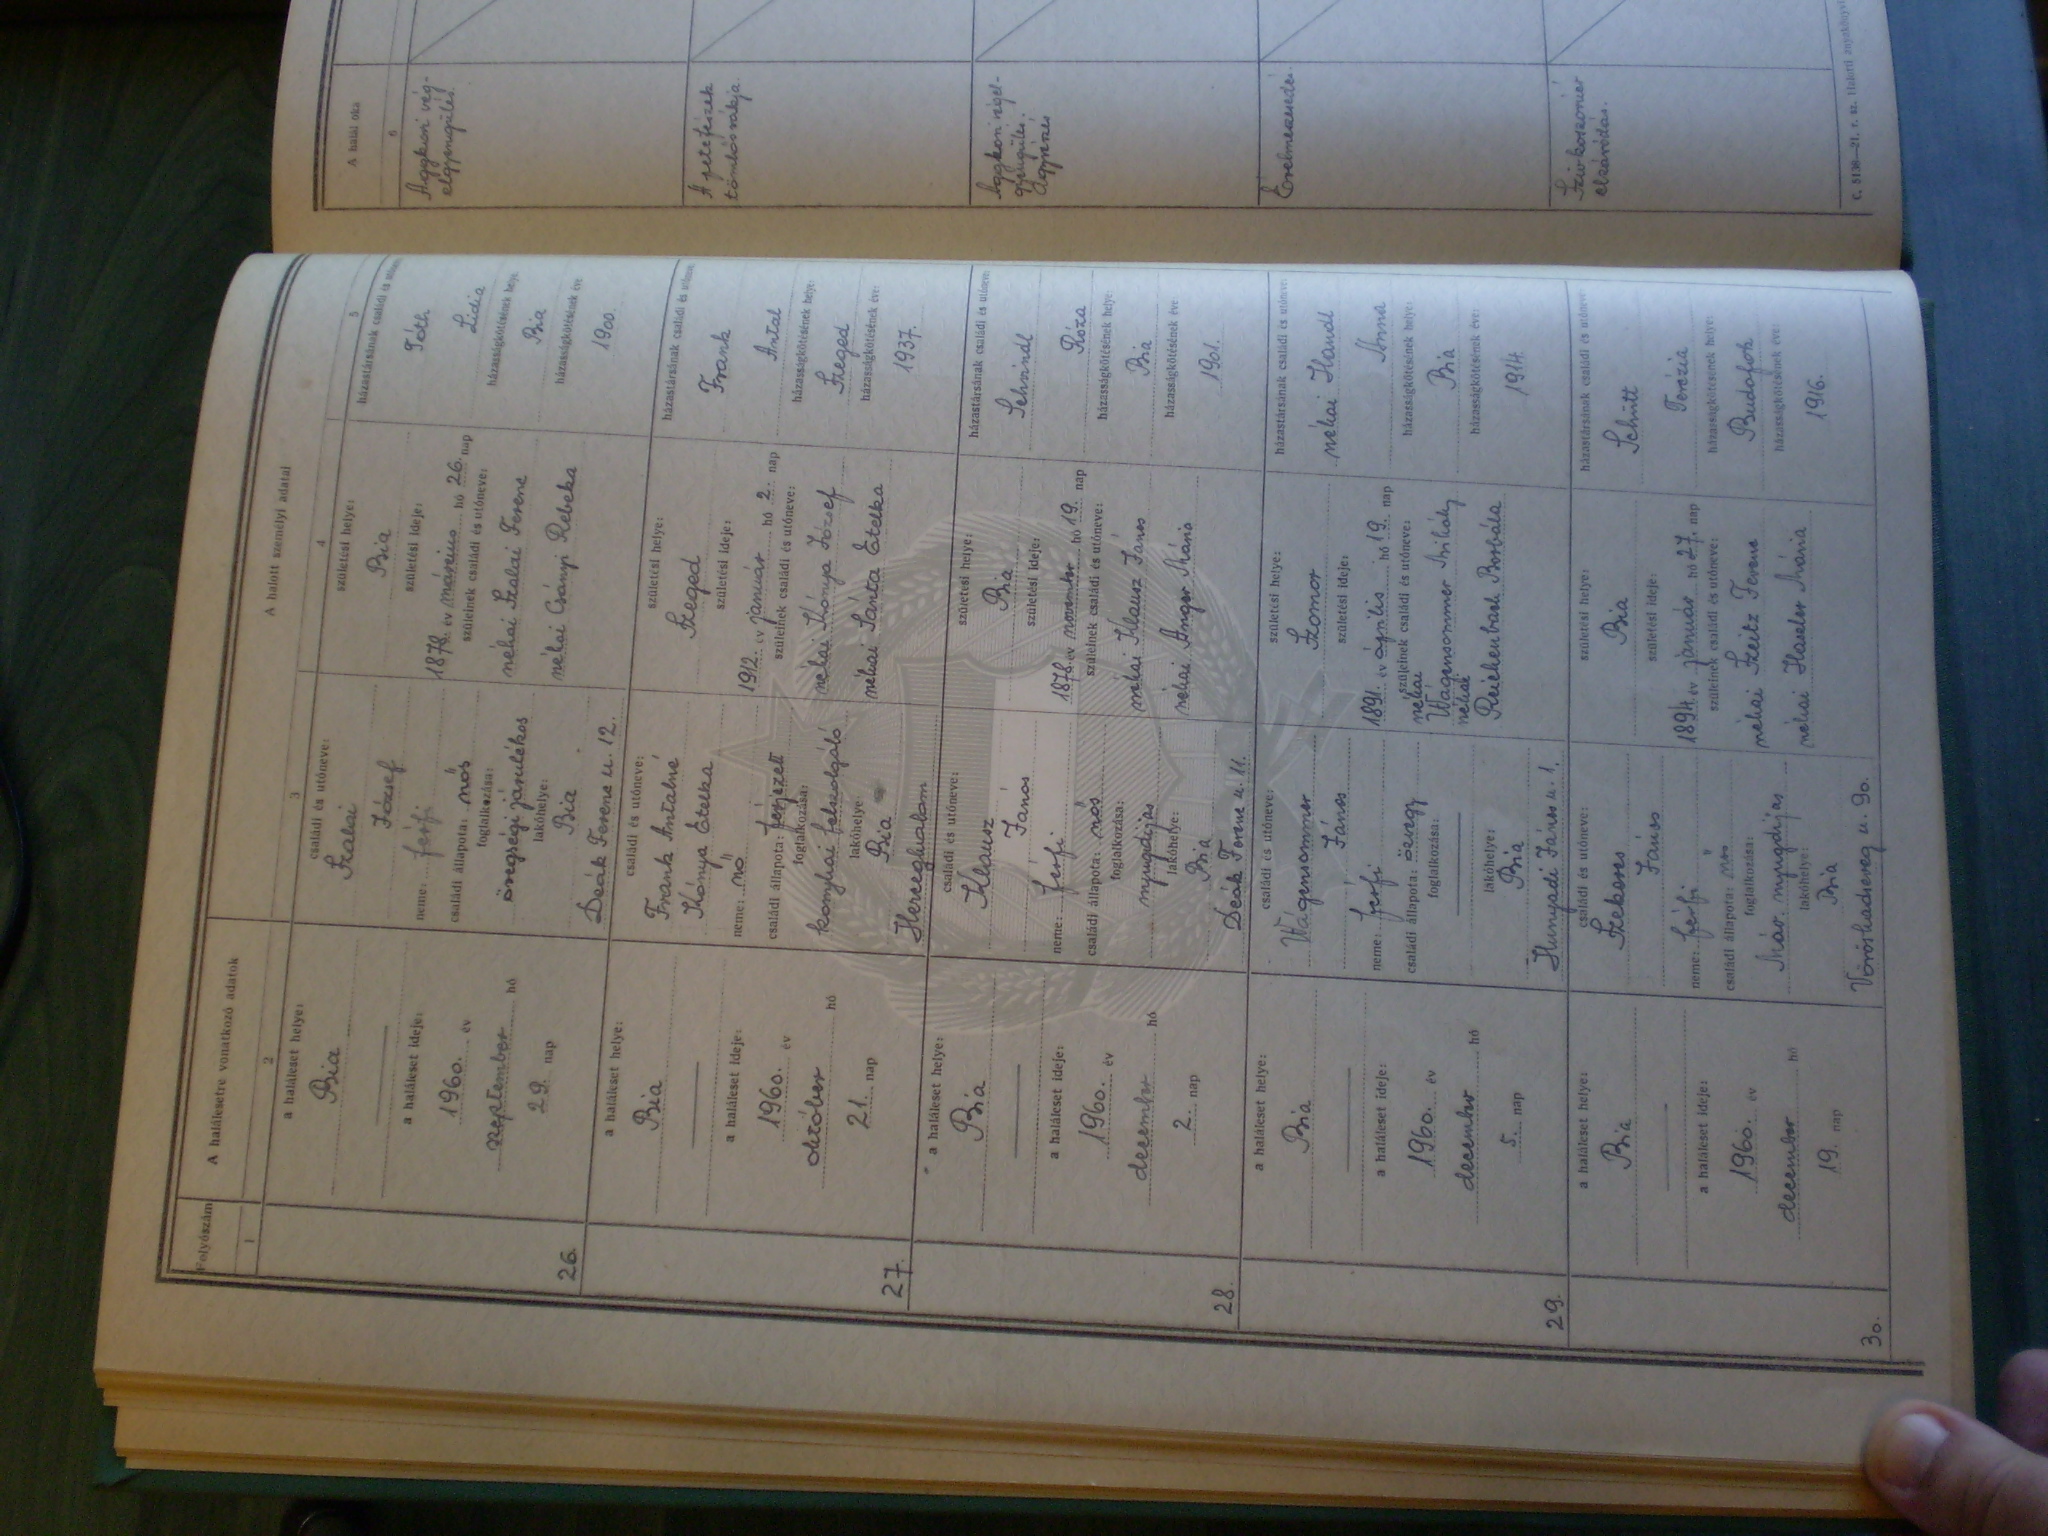 Folyószám
A halálesetre vonatkozó adatok
A halott személyi adatai
A halál oka
1
2
3
4
5
6
26.
a haláleset helye:
Bia
a haláleset ideje:
1960. év
szeptember hó
29. nap
családi és utóneve:
Szalai
József
neme: férfi
családi állapota: nős
foglalkozása:
öregségi járulékos
lakóhelye:
Bia
Deák Ferenc u. 12.
születési helye:
Bia
születési ideje:
1878. év március hó 26. nap
szüleinek családi és utóneve:
néhai Szalai Ferenc
néhai Csányi Rebeka
házastársának családi és utóneve
Tóth
Lidia
házasságkötésének helye
Bia
házasságkötésének éve
1900.
Aggkori vég-
elgyengülés.
27.
a haláleset helye:
Bia
a haláleset ideje:
1960. év
október hó
21. nap
családi és utóneve:
Frank Antalné
Kónya Etelka
neme: nő
családi állapota: férjezett
foglalkozása:
konyhai felszolgáló
lakóhelye:
Bia
Herceghalom
születési helye:
Szeged
születési ideje:
1912. év január hó 2. nap
szüleinek családi és utóneve:
néhai Kónya József
néhai Sánta Etelka
házastársának családi és utóneve
Frank
Antal
házasságkötésének helye:
Szeged
házasságkötésének éve:
1937.
A petefészek
tömlős rákja.
28.
a haláleset helye:
Bia
a haláleset ideje:
1960. év
december hó
2. nap
családi és utóneve:
Klausz
János
neme: férfi
családi állapota: nős
foglalkozása:
nyugdíjas
lakóhelye:
Bia
Deák Ferenc u. 11.
születési helye:
Bia
születési ideje:
1878 év november hó 19. nap
szüleinek családi és utóneve:
néhai Klausz János
néhai Anger Mária
házastársának családi és utóneve:
Schvindl
Róza
házasságkötésének helye:
Bia
házasságkötésének éve
1901.
Aggkori végel-
gyengülés.
29.
a haláleset helye:
Bia
a haláleset ideje:
1960. év
december hó
5. nap
családi és utóneve:
Wágensommer
János
neme: férfi
családi állapota: özvegy
foglalkozása:
lakóhelye:
Bia
Hunyadi János u. 1.
születési helye:
Szomor
születési ideje:
1891. év április hó 19. nap
szüleinek családi és utóneve:
néhai
Wágensommer Mihály
néhai
Reichenbach Borbála
házastársának családi és utóneve:
néhai Handl
Anna
házasságkötésének helye:
Bia
házasságkötésének éve:
1914.
Érelmeszesedés.
30.
a haláleset helye:
Bia
a haláleset ideje:
1960. év
december hó
19. nap
családi és utóneve:
Szekeres
János
neme: férfi
családi állapota: nős
foglalkozása:
Máv. nyugdíjas
lakóhelye:
Bia
Vöröshadsereg u. 90.
születési helye:
Bia
születési ideje:
1894. év január hó 27. nap
szüleinek családi és utóneve:
néhai Szeitz Ferenc
néhai Haseler Mária
házastársának családi és utóneve:
Schütt
Terézia
házasságkötésének helye:
Budafok
házasságkötésének éve:
1916.
Szívkoszorúér
elzáródás.